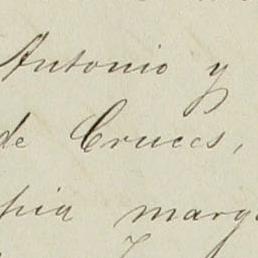 Antonio y
de Cruces,
pia marg